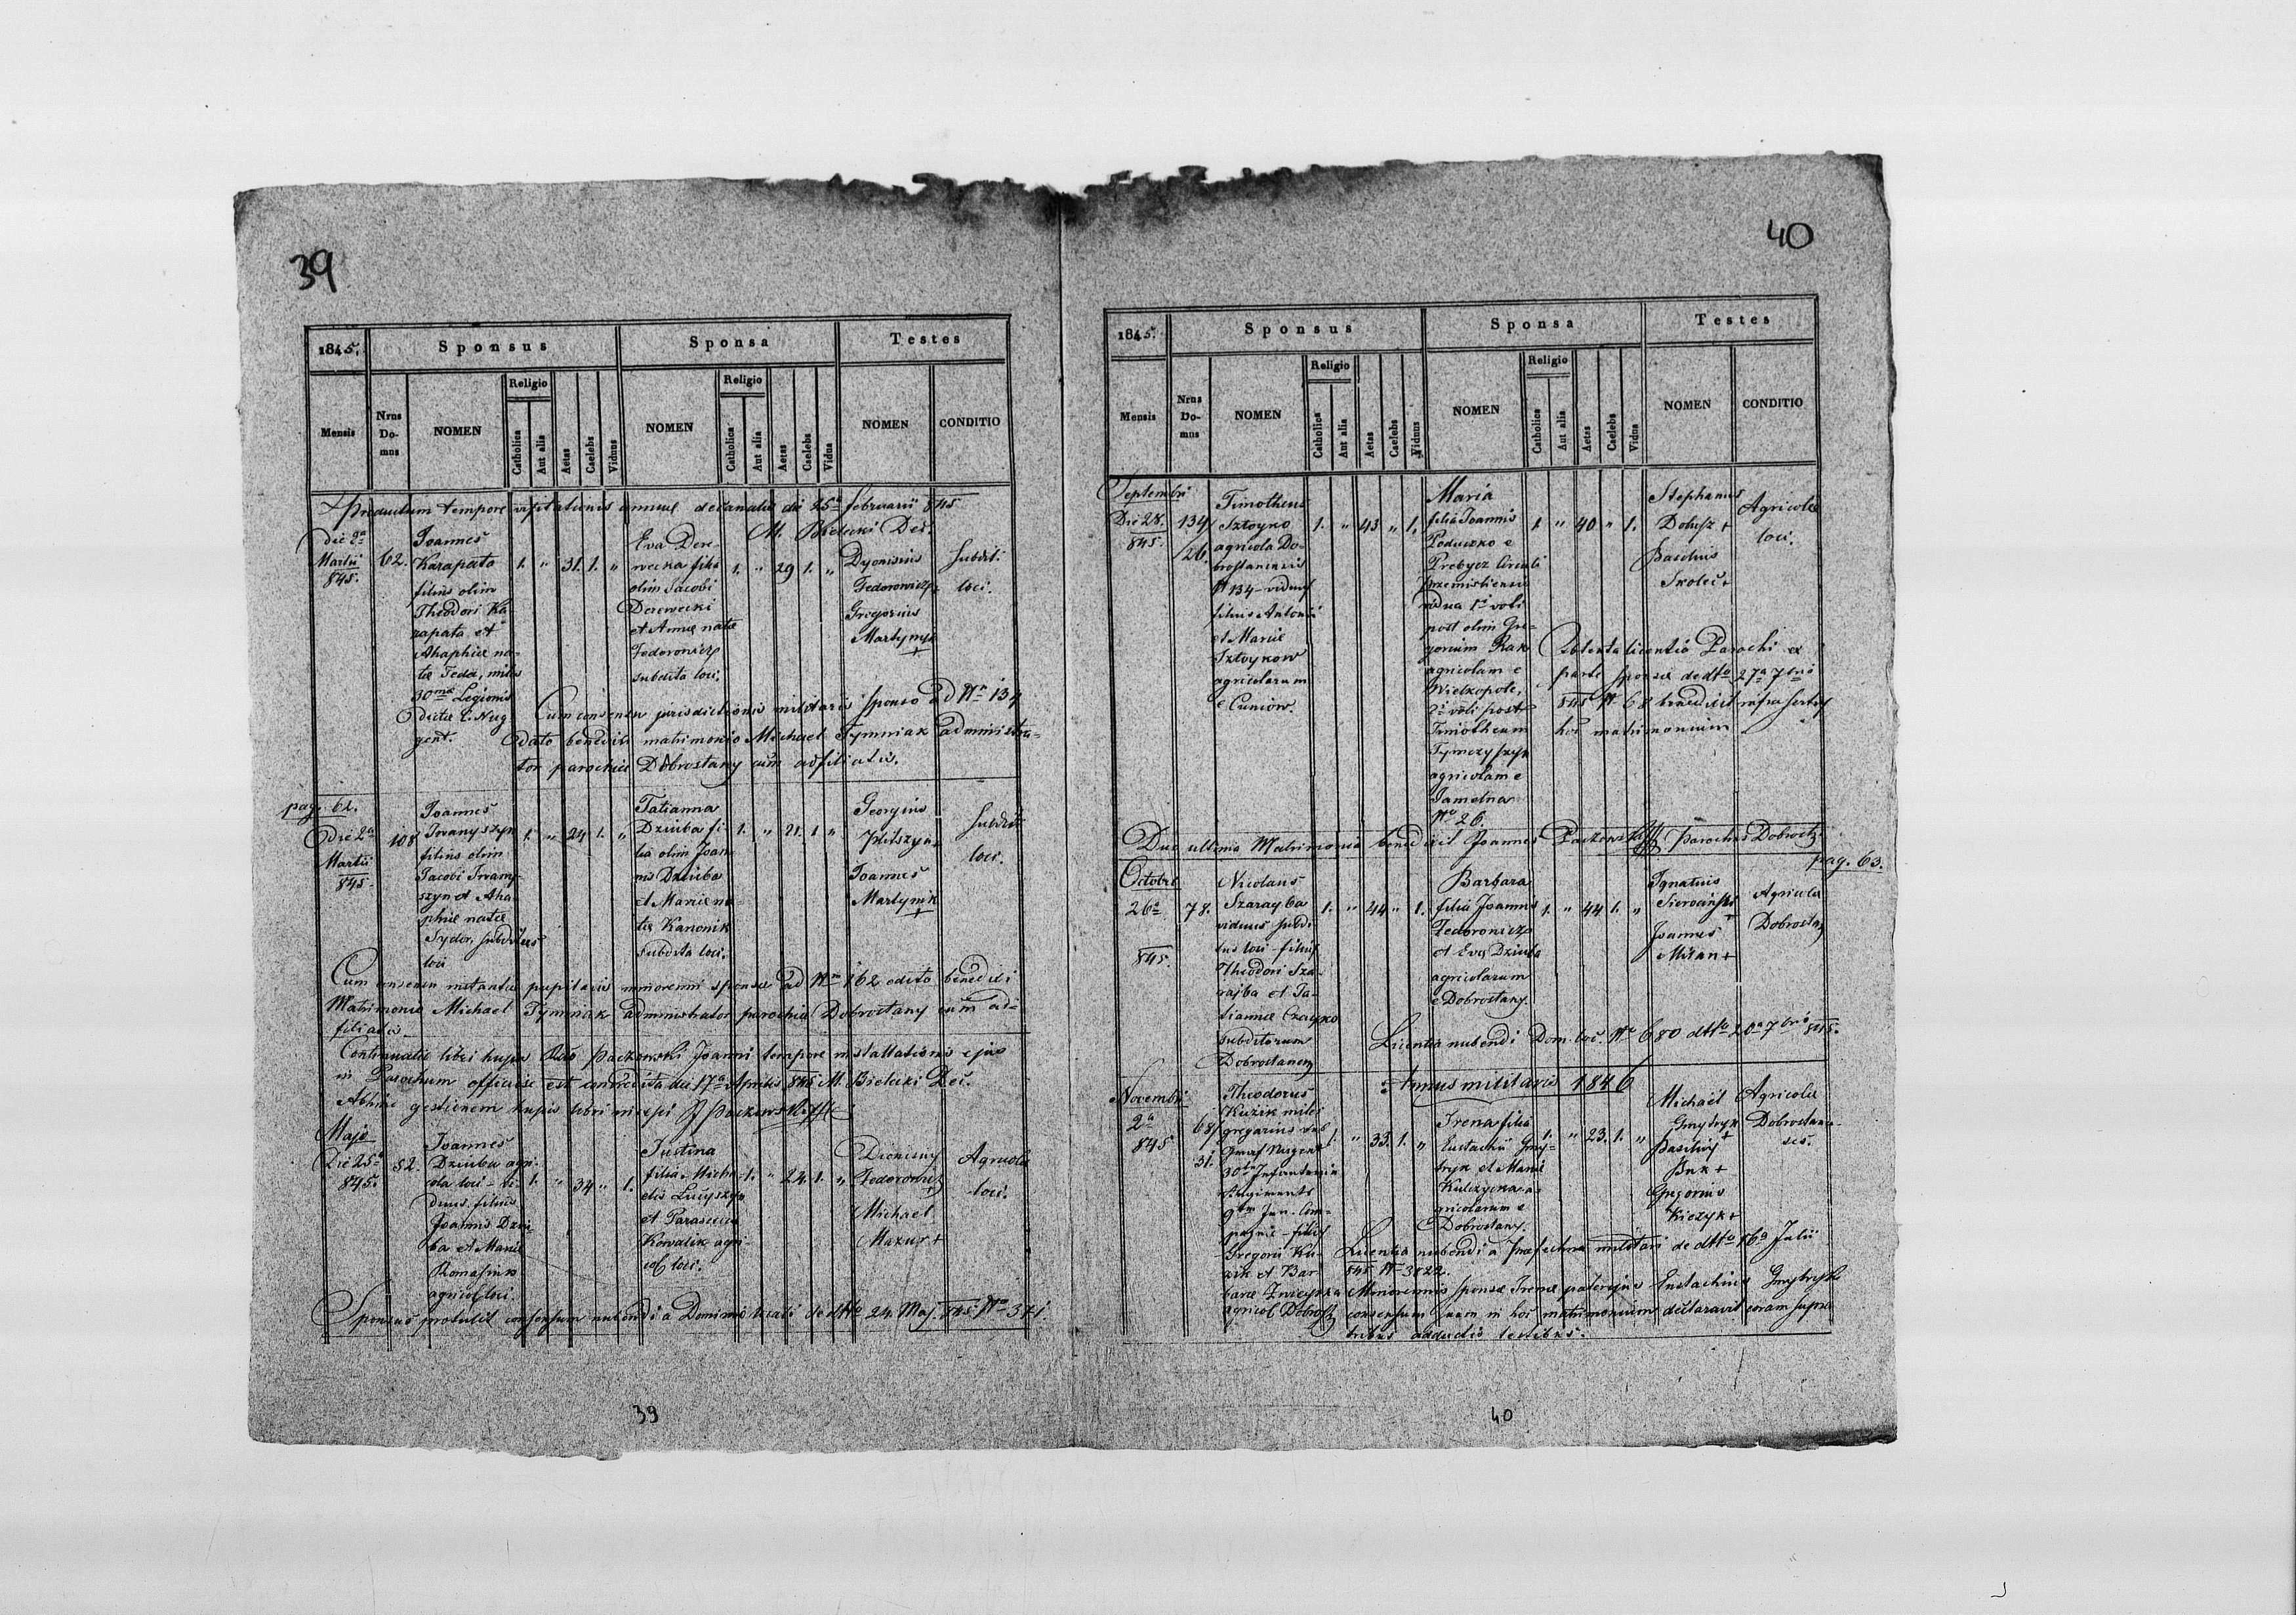 39
1845.
Sponsus
Sponsa
Testes
Mensis
Nrus Do- mus
NOMEN
Religio
Catholica
Aut alia
Aetas
Caelebs
Vidnus
NOMEN
Religio
Catholica
Aut alia
Aetas
Caelebs
Vidua
NOMEN
CONDITIO
Productum tempore visitationis annuae decanalis die 25a februarii 845
M. Bielecki Dec.
Die 2a
Martii
845.
62.
Joannes
Karapata
filius olim
Theodori Ka
rapata et
Ahaphiae na-
tae Feda, miles
30mae Legionis
dictae C. Nug
gent.
1. " 31. 1. "
Eva Dere
wecka filia
olim Jacobi
Derewecki
et Annae natae
Fedorowicz
subdita loci.
1. " 29 1. "
Dyonisius
Fedorowicz
Gregorius
Martynyk
+
Subditi
loci.
Cum consensu jurisdictionis militaris sponso ad Nm 134
dato benedixit matrimonio Michael Tymniak administra-
tor parochiae Dobrostany cum adfiliatis.
pag. 62.
Die 2a
Martii
845.
108
Joannes
Iwanyszyn
filius olim
Jacobi Iwany-
szyn et Aha
phiae natae
Sydor, subditus
loci
1. " 24 1. "
Tatianna
Dziuba fi-
lia olim Joan
nis Dziuba
et Mariae na-
tae Kanonik
subdita loci.
1. " 21. 1 "
Georgius
Joannes
Martynik
+
Subditi
loci.
Cum consensu instantiae pupilaris minorenni sponsae ad Nm 162 edito benedixi
Matrimonio Michael Tymniak administrator parochiae Dobrostany cum ad-
filiatis
Continuatio libri hujus Rdo Paczowski Joanni tempore installationis ejus
in Parochum officiose est concredita die 17a Aprilis 845 M. Bielecki Dec.
Abhinc gestionem hujus libri incepi J Paczowski
Majo
Die 25a
845.
82.
Joannes
Dziuba agri-
cola loci - vi-
duus filius
Joannis Dziu
ba et Mariae
Romasiuk
agricol. loci.
1. " 34 " 1.
Justina
filia Micha-
elis Lucyszyn
et Parascevia
Kowalik agri-
col. loci.
1. " 24. 1. "
Dionisuy
Fedorowicz
Michael
Mazur +
Agricolae
loci.
Sponsus protulit consensum nubendi a Dominio locali de dtto 24 Maj. 845 No 371.
39
40
1845.
Sponsus
Sponsa
Testes
Mensis
Nrus Do- mus
NOMEN
Religio
Catholica
Aut alia
Aetas
Caelebs
Vidnus
NOMEN
Religio
Catholica
Aut alia
Aetas
Caelebs
Vidua
NOMEN
CONDITIO
Septembri
Die 28.
845.
134/
/26.
Timotheus
Sztoyko
agricola Do-
brostanensis
N 134 - viduus
filius Antonii
et Mariae
Sztoykow
agricolarum
e Cuniow.
1. " 43 " 1.
Maria
filia Joannis
Poduczko e
Trebycz Circuli
Przemisliensis
vidua 1i voti
post olim Gre-
gorium Rak
agricolam e
Wielkopole,
2i voti post
Timotheum
Tymczyszyn
agricolam e
Jamelna
No 26.
1. " 40 " 1.
Stephanus
Dohusz +
Basilius
Skolec +
Agricolae
loci.
Obtenta licentia Parochi ex
parte sponsae de dtto 27a 7bris
845 N. 68 benedixit infrascriptus
hoc matrimonium
Duo ultima Matrimonia benedixit Joannes Paczowski Parochus Dobrost.
pag. 63.
Octobri
26a
845.
78.
Nicolaus
Szarayba
viduus subdi-
tus loci - filius
Theodori Sza-
rajba et Ta-
tiannae Czayko
subditorum
Dobrostanen
1. " 44 " 1.
Barbara
filia Joannis
Fedorowicz
et Eva Dziuba
agricolarum
e Dobrostany.
1. " 44 1. "
Ignatius
Sierociński
+
Joannes
Milan +
Agricolae
Dobrostan
Licentia nubendi Dom. loc. No 680 dtto 20a 7bris 845.
Annus militaris 1846
Novembri
2a
845
68/
31.
Theodorus
Kuzik miles
gregarius sub
Graf Nugent
30tae Infanteriae
Regiments
9tm Com-
pagnie - filius
Gregorii Ku-
zik et Bar
barae Zwizynka
agricol. Dobrost.
1. " 33. 1. "
Irena filia
Eustachii Gmy-
tryk et Mariae
Kulczycka a-
gricolarum e
Dobrostany.
1. " 23. 1. "
Michael
Gmytryk
+
Basilius
Buk +
Gregorius
Kiczyk +
Agricolae
Dobrostanen-
ses.
Licentia nubendi a Praefectura militari de dtto 16a Julii
845 No 3822.
Minorennis sponsae Irenae pater ejus Eustachius Gmytryk
consensum suum in hoc matrimonium declaravit coram supra
tribus adductis testibus.
40